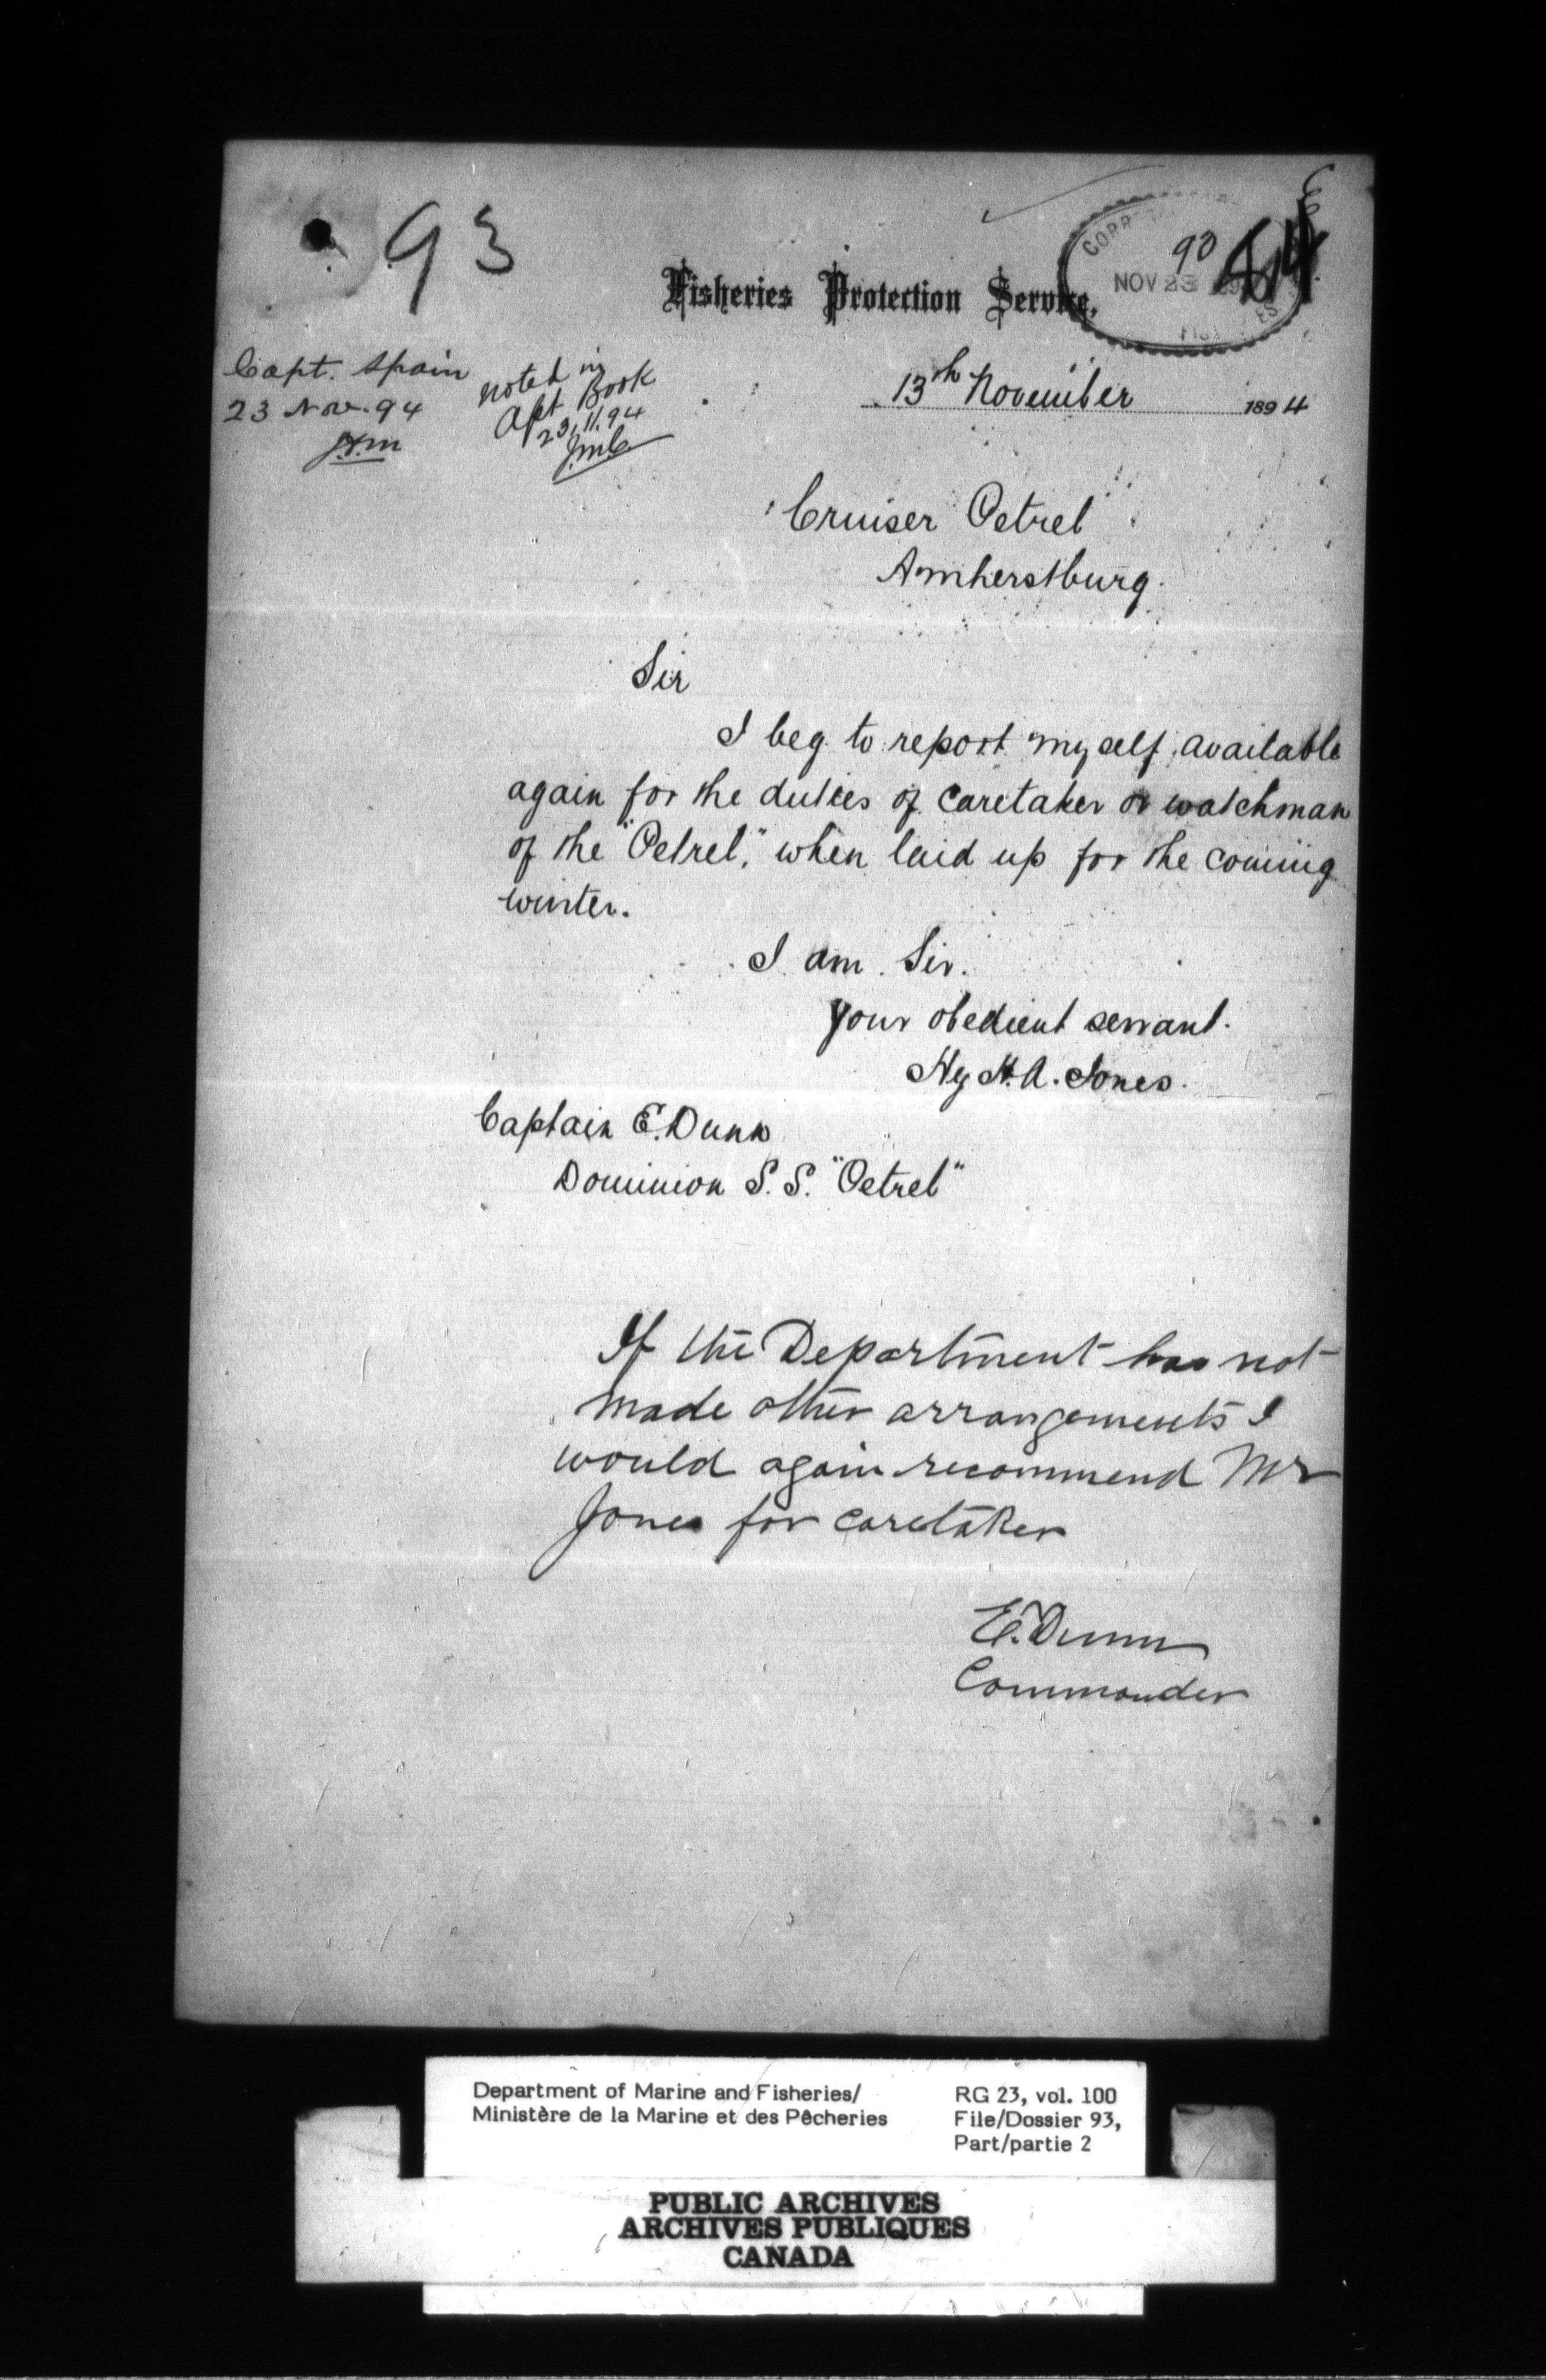 93
90
NOV 23
44
Fisheries Protection Service,
Capt. Spain
23 Nov. 94
noted in
Apt Book
23.11.94
13th November 1894
"Cruiser Petrel"
Amherstburg.
Sir
I beg to report myself available
again for the duties of caretaker or watchman
of the "Petrel," when laid up for the coming
winter.
I am Sir.
Your obedient servant.
Hy H. A. Jones.
Captain E. Dunn
Dominion S.S. "Petrel"
If the Department has not
made other arrangements I
would again recommend Mr
Jones for caretaker
E. Dunn
Commander
Department of Marine and Fisheries/
Ministère de la Marine et des Pêcheries
RG 23, vol. 100
File/Dossier 93,
Part/partie 2
PUBLIC ARCHIVES
ARCHIVES PUBLIQUES
CANADA